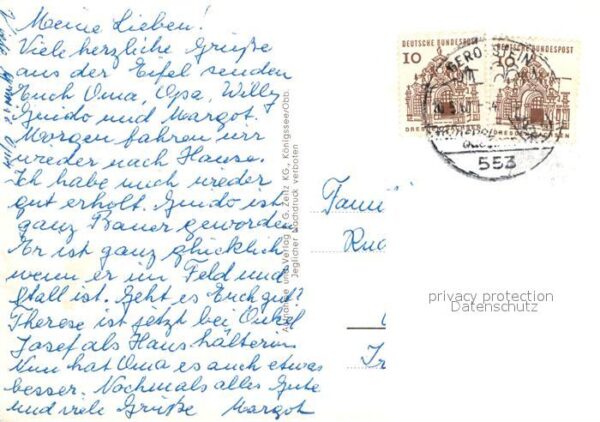 Meine Lieben!
Viele herzliche Grüße
aus der Eifel senden
Euch Oma, Opa, Willy
Guido und Margot.
Morgen fahren wir
wieder nach Hause.
Ich habe mich wieder
gut erholt. Guido ist
ganz Bauer geworden
Er ist ganz glücklich
wenn er im Feld und
Stall ist. Geht es Euch gut?
Therese ist jetzt bei Onkel
Josef als Haushälterin
Nun hat Oma es auch etwas
besser. Nochmals alles Gute
und viele Grüße Margot
Aufnahme und Verlag H. G. Zeitz KG., Königssee/Obb.
Jeglicher Nachdruck verboten
DEUTSCHE BUNDESPOST
10
DRESDEN
DEUTSCHE BUNDESPOST
10
DRESDEN
GEROLSTEIN
553
Famil
Ru
privacy protection
Datenschutz